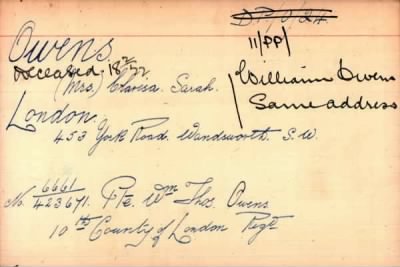 11/PP/
Owens.
Deceased 18/2/22
(Mrs.) Claresa Sarah.
William Owens
Same address
London.
453 York Road. Wandsworth. S.W.
No. 6661/423671. Pte. Wm Thos. Owens
10th County of London Regt